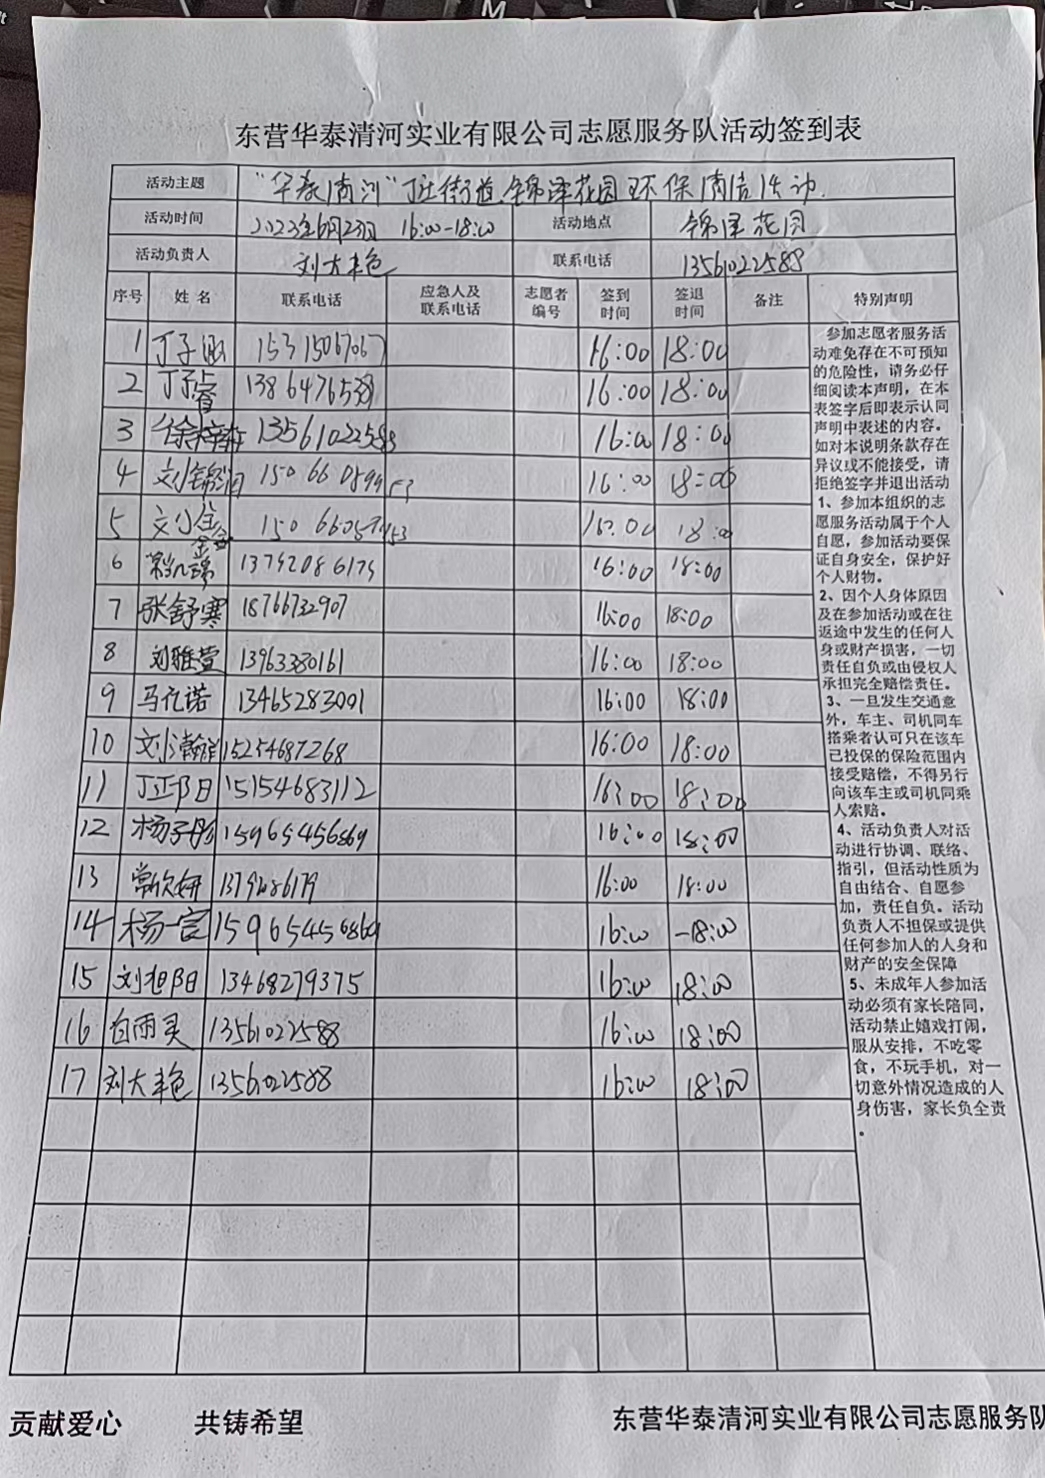 东营华泰清河实业有限公司志愿服务队活动签到表
活动主题 “华泰清河”丁庄街道锦泽花园环保清洁活动.
活动时间 2023年6月23日 16:00-18:00 活动地点 锦泽花园
活动负责人 刘大丰色 联系电话 13561022588
序号 姓名 联系电话 应急人及联系电话 志愿者编号 签到时间 签退时间 备注 特别声明
1 丁子 15315067067 16:00 18:00
2 丁子睿 13864765 16:00 18:00
3 徐梓 13561022588 16:00 18:00
4 刘锦润 150660 53 16:00 18:00
5 刘 150660 53 16:00 18:00
6 常凯瑞 16:00 18:00
7 张舒寒 18766732907 16:00 18:00
8 刘雅萱 13963380161 16:00 18:00
9 马亿诺 13465283001 16:00 18:00
10 刘瀚祥 15254687268 16:00 18:00
11 丁正阳 15154683112 16:00 18:00
12 杨子彤 15965456869 16:00 18:00
13 常欣妍 16:00 18:00
14 杨一宸 15965456869 16:00 -18:00
15 刘旭阳 13468279375 16:00 18:00
16 白雨灵 13561022588 16:00 18:00
17 刘大丰色 13561022588 16:00 18:00
参加志愿者服务活
动难免存在不可预知
的危险性，请务必仔
细阅读本声明，在本
表签字后即表示认同
声明中表述的内容。
如对本说明条款存在
异议或不能接受，请
拒绝签字并退出活动
1、参加本组织的志
愿服务活动属于个人
自愿，参加活动要保
证自身安全，保护好
个人财物。
2、因个人身体原因
及在参加活动或在往
返途中发生的任何人
身或财产损害，一切
责任自负或由侵权人
承担完全赔偿责任。
3、一旦发生交通意
外，车主、司机同车
搭乘者认可只在该车
已投保的保险范围内
接受赔偿，不得另行
向该车主或司机同乘
人索赔。
4、活动负责人对活
动进行协调、联络、
指引，但活动性质为
自由结合、自愿参
加，责任自负。活动
负责人不担保或提供
任何参加人的人身和
财产的安全保障
5、未成年人参加活
动必须有家长陪同，
活动禁止嬉戏打闹，
服从安排，不吃零
食，不玩手机，对一
切意外情况造成的人
身伤害，家长负全责
。
贡献爱心 共铸希望 东营华泰清河实业有限公司志愿服务队